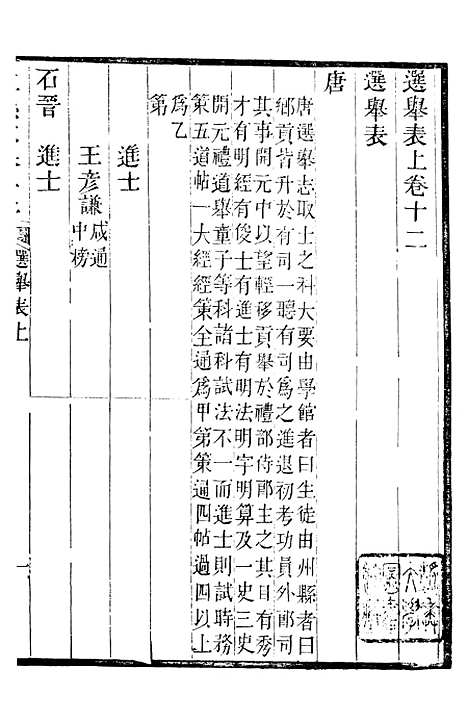 選舉表上卷十二
選舉表
唐
唐選舉志取士之科大要由學館者曰生徒由州縣者曰
鄉貢皆升於有司一聽有司爲之進退初考功員外郎司
其事開元中以望輕移貢舉於禮部侍郎主之其目有秀
才有明經有俊士有進士有明法明字明算及一史三史
開元禮道舉童子等科諸科試法不一而進士則試時務
策五道帖一大經經策全通爲甲第策通四帖過四以上
爲乙
第
進士
王彦謙咸通中榜
石晉 進士
選舉表上
一